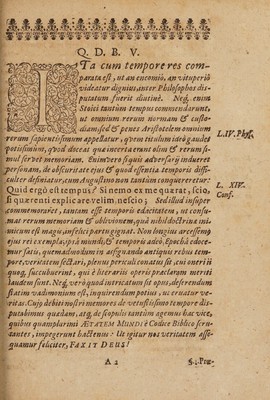 Q. D. B. V.
ITa cum tempore res com-
parata est, ut an encomiô, an vituperiô
videatur dignius, inter Philosophos dis-
putatum fuerit diutinè. Neg, enim
Stoici tantùm tempus commendarunt,
ut omnium rerum normam & custo-
diam, sed & penes Aristotelem omnium
rerum sapientissimum appellatur, qvem titulum ideò gaudet
potissimùm, qvod doceat qvæ incerta erunt olim & rerum si-
mul servet memoriam. Enimvero siquis adversarij indueret
personam, de obscuritate ejus & quod essentia temporis diffi-
culter definiatur, cum Augustino non tantùm conquereretur:
Quid ergò est tempus? Si nemo ex me quærat, scio,
si quærenti explicare velim, nescio; Sed illud insuper
commemoraret, tantam esse temporis edacitatem, ut confun-
mat rerum memoriam & oblivionem, quâ nihil doctrinæ ini-
micum est magis, infelici partu gignat. Non longius arcessimq
ejus rei exempla, ipsâ mundi, & temporis adeò, Epochâ edoce-
mur satis, quemadmodum in assequanda antiquis rebus tem-
pore, veritatem sectari, plenus periculi conatus sit, cui onerili
quoq, succubuerint, qui è literariis operis præclaram meriti
laudem sunt. Neg, verò quod intricatum sit opus, deserendum
statim vadimonium est, inquirendum potius, ut eruatur ve-
ritas. Cujus debiti nostri memores de vetustissimo tempore dis-
putabimus quædam, atg, de scopulis tantùm agemus hac vice,
quibus quamplurimi ÆTATEM MUNDI è Codice Biblico scru-
tantes, impegerunt hactenus: Ut igitur nos veritatem asse-
quamur feliciter, FAXIT DEUS!
L. IV. Phys.
L. XIV.
Conf.
A 2